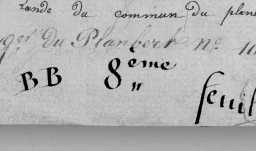 Lande du commun du plene
du Planbert n°
BB 8eme
"
feuil